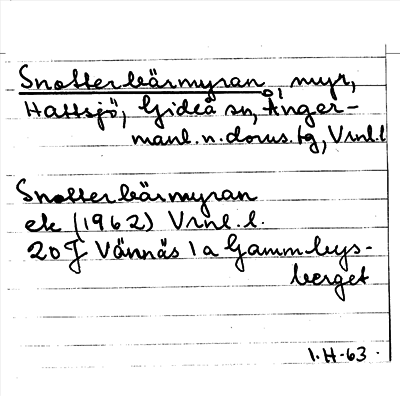 Snotterbärmyran, myr,
Hattsjö, Gideå sn, Ånger-
manl. n. doms. fg, Vrnl. l
Snotterbärmyran
ek (1962) Vrnl. l.
20 J Vännäs 1 a Gammbys-
berget
I. H-63.